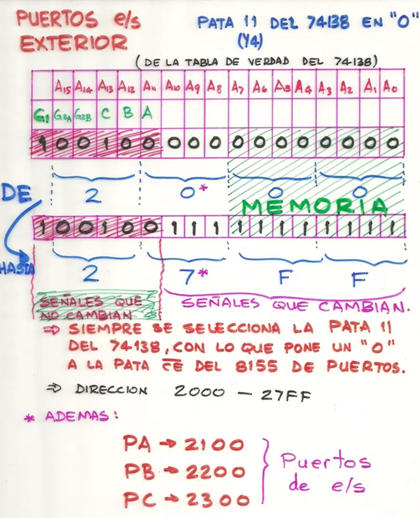 PUERTOS e/s
EXTERIOR
PATA 11 DEL 74138 EN "0"
(Y4)
(DE LA TABLA DE VERDAD DEL 74138)
A15 A14 A13 A12 A11 A10 A9 A8 A7 A6 A5 A4 A3 A2 A1 A0
G1 G2A G2B C B A
1 0 0 1 0 0 0 0 0 0 0 0 0 0 0 0 0
DE 2 0* 0 0
MEMORIA
1 0 0 1 0 0 1 1 1 1 1 1 1 1 1 1 1
HASTA 2 7* F F
SEÑALES QUE
NO CAMBIAN
SEÑALES QUE CAMBIAN.
⇒ SIEMPRE SE SELECCIONA LA PATA 11
DEL 74138, CON LO QUE PONE UN "0"
A LA PATA C̅E̅ DEL 8155 DE PUERTOS.
⇒ DIRECCION 2000 — 27FF
* ADEMAS:
PA → 2100
PB → 2200
PC → 2300
Puertos
de e/s